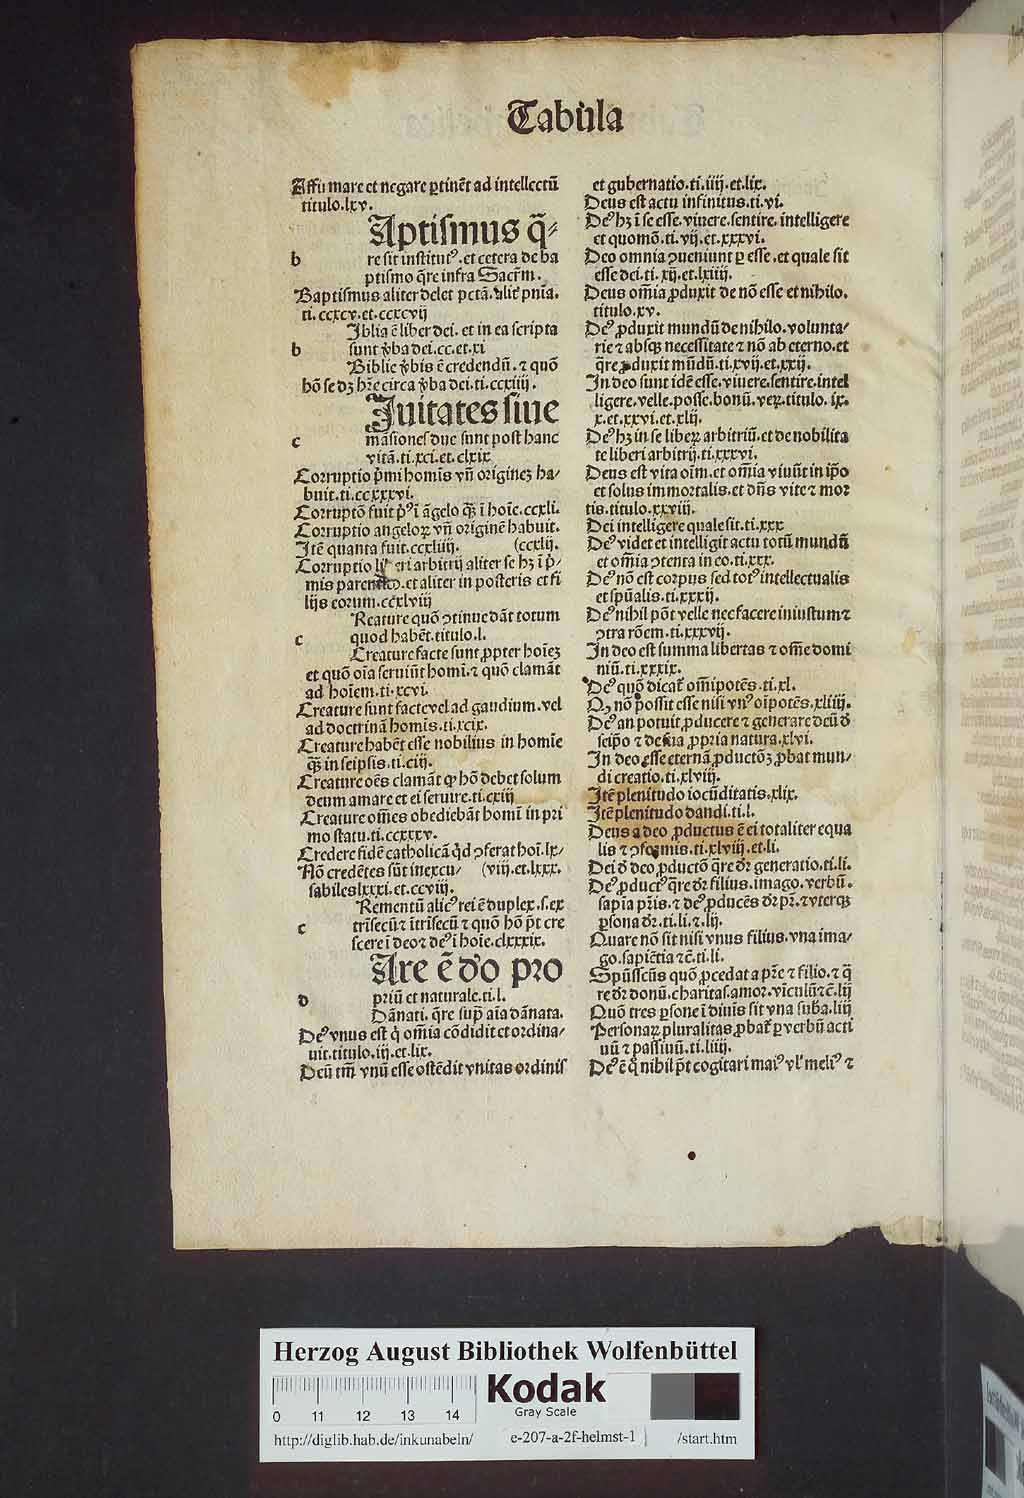 Tabula
Affirmare et negare ꝑtinẽt ad intellectũ
titulo.lxv.
Aptismus q̃-
b re sit institutꝰ.et cetera de ba
ptismo q̃re infra Sacr̃m.
Baptismus aliter delet pctã.alit̃ pnĩa.
ti.ccxcv.et.ccxcvij
Iblia ẽ liber dei.et in ea scripta
b sunt ṽba dei.cc.et.xi
Biblie ṽbis ẽ credendũ.⁊ quõ
hõ se dꝫ hr̃e circa ṽba dei.ti.ccxiiij.
Iuitates siue
c mãsiones due sunt post hanc
vitã.ti.xci.et.clxix
Corruptio p̃mi homĩs vñ originẽ ha-
buit.ti.ccxxxvi.
Corruptõ fuit pꝰ ĩ ãgelo qꝫ̃ ĩ hoĩe.ccxli.
Corruptio angeloꝝ vñ originẽ habuit.
Itẽ quanta fuit.ccxliiij. (ccxlij.
Corruptio liberi arbitrij aliter se hꝫ ĩ p̃-
mis parentibꝰ.et aliter in posteris et fi
lijs eorum.ccxlviij
Reature quõ ↄtinue dãt totum
c quod habẽt.titulo.l.
Creature facte sunt ꝓpter hoĩeꝫ
et quõ oĩa seruiũt homĩ.⁊ quõ clamãt
ad hoĩem.ti.xcvi.
Creature sunt facte vel ad gaudium.vel
ad doctrinã homĩs.ti.xcix.
Creature habẽt esse nobilius in homĩe
qꝫ̃ in seipsis.ti.ciij.
Creature oẽs clamãt ꝙ hõ debet solum
deum amare et ei seruire.ti.cxiij
Creature om̃es obediebãt homĩ in pri
mo statu.ti.ccxxxv.
Credere fidẽ catholicã qd̃ ↄferat hoĩ.lx-
Nõ credẽtes sũt inexcu- (viij.et.lxxx.
sabiles lxxxi.et.ccviij.
Rementũ alicꝰ rei ẽ duplex.s.ex
c trĩsecũ ⁊ ĩtrĩsecũ ⁊ quõ hõ p̃t cre
scere ĩ deo ⁊ deꝰ ĩ hoĩe.clxxxix.
Are ẽ dõ pro
d priũ et naturale.ti.l.
Dãnati.q̃re sup̃ aĩa dãnata.
Deꝰ vnus est q̃ om̃ia cõdidit et ordina-
uit.titulo.iij.et.lix.
Deũ tm̃ vnũ esse ostẽdit vnitas ordinis
et gubernatio.ti.iiij.et.lix.
Deus est actu infinitus.ti.vi.
Deꝰ hꝫ ĩ se esse.viuere.sentire.intelligere
et quomõ.ti.vij.et.xxxvi.
Deo omnia ↄueniunt ꝑ esse.et quale sit
esse dei.ti.xij.et.lxiiij.
Deus om̃ia ꝓduxit de nõ esse et nihilo.
titulo.xv.
Deꝰ ꝓduxit mundũ de nihilo.volunta-
rie ⁊ absqꝫ necessitate ⁊ nõ ab eterno.et
q̃re ꝓduxit mũdũ.ti.xvij.et.xxij.
In deo sunt idẽ esse.viuere.sentire.intel
ligere.velle.posse.bonũ.veꝝ.titulo.ix.
x.et.xxvi.et.xlij.
Deꝰ hꝫ in se libeꝝ arbitriũ.et de nobilita
te liberi arbitrij.ti.xxxvi.
Deus est vita oĩm.et om̃ia viuũt in ip̃o
et solus immortalis.et dñs vite ⁊ mor
tis.titulo.xxviij.
Dei intelligere quale sit.ti.xxx
Deꝰ videt et intelligit actu totũ mundũ
et om̃ia ↄtenta in eo.ti.xxx.
Deꝰ nõ est corpus sed totꝰ intellectualis
et spũalis.ti.xxxij.
Deꝰ nihil põt velle nec facere iniustum ⁊
ↄtra rõem.ti.xxxvij.
In deo est summa libertas ⁊ om̃e domi
niũ.ti.xxxix.
Deꝰ quõ dicat̃ om̃ipotẽs.ti.xl.
Qꝫ nõ possit esse nisi vnꝰ oĩpotẽs.xliiij.
Deꝰ an potuit ꝓducere ⁊ generare deũ d̃
seip̃o ⁊ de sua ꝓpria natura.xlvi.
In deo esse eternã ꝓductõꝫ ꝓbat mun-
di creatio.ti.xlviij.
Itẽ plenitudo iocũditatis.xlix.
Itẽ plenitudo dandi.ti.l.
Deus a deo ꝓductus ẽ ei totaliter equa
lis ⁊ ↄformis.ti.xlviij.et.li.
Dei d̃ deo ꝓductõ q̃re dr̃ generatio.ti.li.
Deꝰ ꝓductꝰ q̃re dr̃ filius.imago.verbũ.
sapĩa pr̃is.⁊ deꝰ ꝓducẽs dr̃ pr̃.⁊ vterqꝫ
ꝑsona dr̃.ti.li.⁊.lij.
Quare nõ sit nisi vnus filius.vna ima-
go.sapiẽtia ⁊c̃.ti.li.
Spũssctũs quõ ꝓcedat a pr̃e ⁊ filio.⁊ q̃
re dr̃ donũ.charitas.amor.vĩculũ ⁊c̃.lij
Quõ tres ꝑsone ĩ diuĩs sit vna suba̅.liij
Personaꝝ pluralitas ꝓbat̃ ꝑ verbũ acti
uũ ⁊ passiuũ.ti.liiij.
Deꝰ ẽ q̃ nihil p̃t cogitari maiꝰ vl̃ meliꝰ ⁊
Herzog August Bibliothek Wolfenbüttel
Kodak
Gray Scale
0 11 12 13 14
http://diglib.hab.de/inkunabeln/ e-207-a-2f-helmst-1 /start.htm